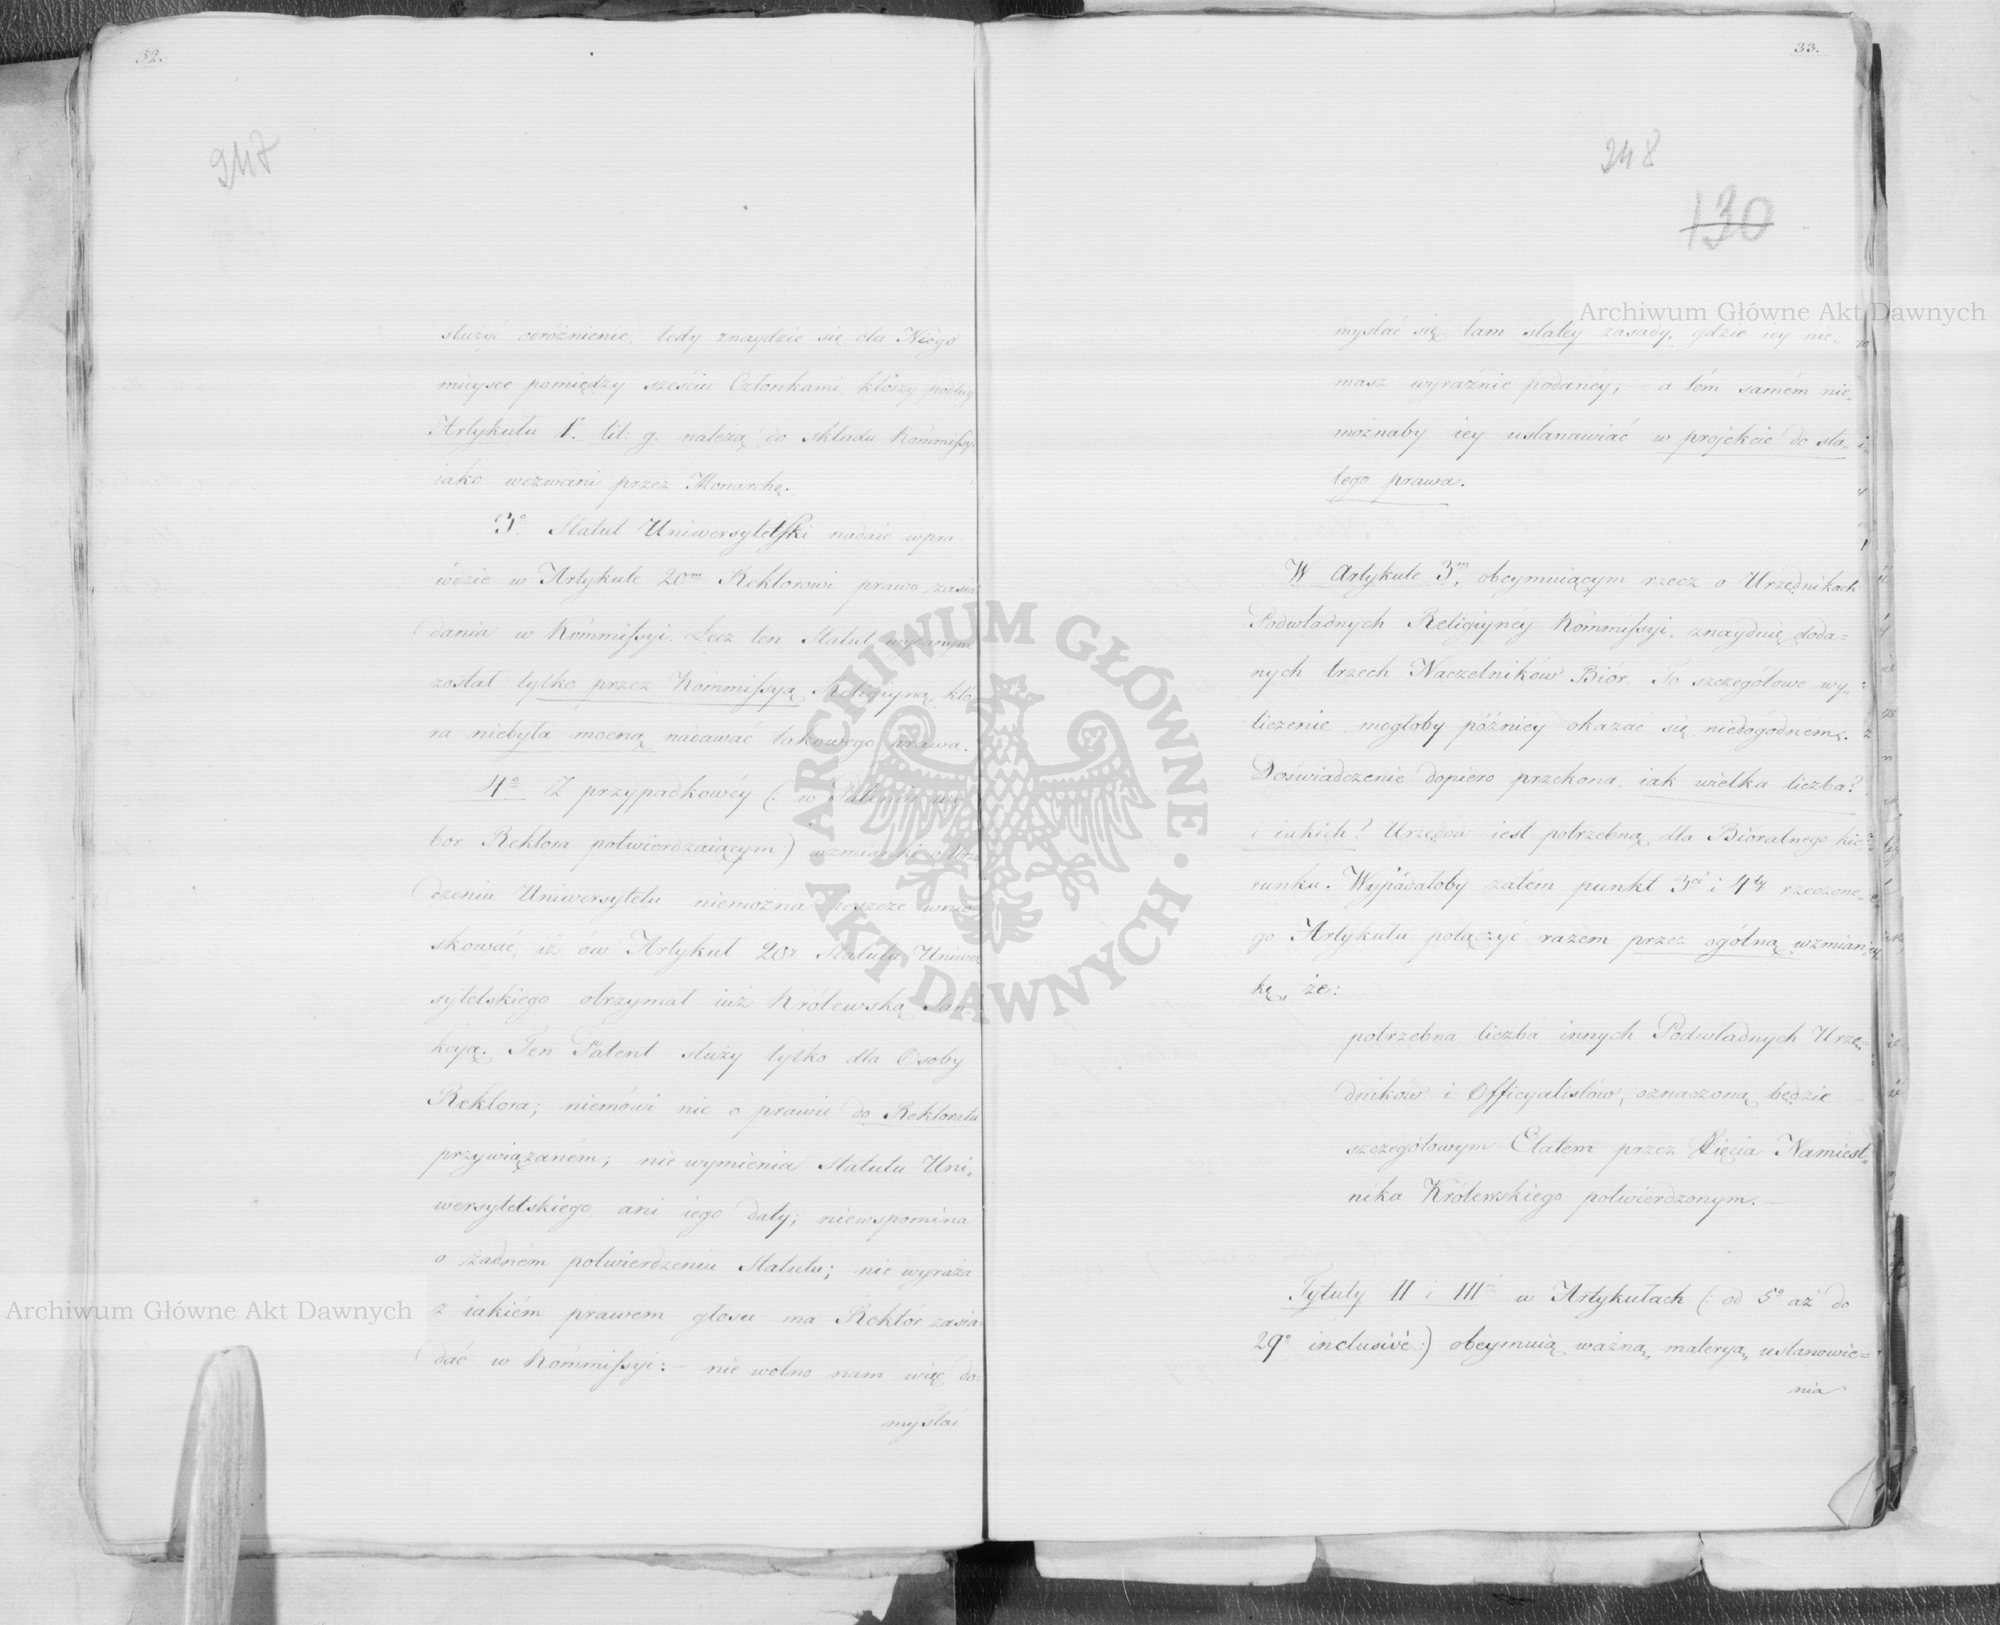 32.
947
służyć odróżnienie; tedy znaydzie się dla Niego
mieysce pomiędzy sześciu Członkami, którzy podług
Artykułu 1º. lit: g. należą do składu Kommissyi
iako wezwani przez Monarchę.
3º. Statut Uniwersytetski nadaie wpra
wdzie w Artykule 20m Rektorowi prawo zasia
dania w Kommissyi. Lecz ten Statut wydanym
został tylko przez Kommissyą Religiyną, któ
ra niebyła mocną nadawać takowego prawa.
4º Z przypadkowéy (: w Patencie wy
bor Rektora potwierdzaiącym) wzmianki o Urzą
dzeniu Uniwersytetu niemożna ieszcze wnio
skować, iż ów Artykuł 20y Statutu Uniwer
sytetskiego otrzymał iuż Królewską San
kcyą. Ten Patent służy tylko dla Osoby
Rektora; niemówi nic o prawie do Rektoratu
przywiązaném; nie wymienia Statutu Uni-
wersytetskiego ani iego daty; niewspomina
o żadném potwierdzeniu Statutu; nie wyraża
z iakiém prawem głosu ma Rektór zasia
dać w Kommissyi: – nie wolno nam więc do
myślać
33.
948
130
myślać się tam stałey zasady, gdzie iey nie-
masz wyraźnie podanéy; a tém samém nie-
możnaby iey ustanawiać w projekcie do sta-
łego prawa.
W Artykule 3m, obeymuiącym rzecz o Urzędnikach
Podwładnych Religiynéy Kommissyi, znayduię doda=
nych trzech Naczelników Biór. To szczegółowe wy-
liczenie mogłoby późniey okazać się niedogodnem.
Doświadczenie dopiero przekona, iak wielka liczba?
i iakich? Urzędów iest potrzebną dla Bióralnego kie-
runku. Wypadałoby zatém punkt 3ci i 4ty rzeczone-
go Artykułu połączyć razem przez ogólną wzmian
kę, że:
potrzebna liczba innych Podwładnych Urzę-
dników i Officyalistów, oznaczoną będzie
szczegółowym Etatem przez Xięcia Namiest-
nika Królewskiego potwierdzonym. –
Tytuły II i III w Artykułach (: od 5º aż do
29º inclusivè :) obeymuią ważną materyą, ustanowie=
nia
Archiwum Główne Akt Dawnych
Archiwum Główne Akt Dawnych
ARCHIWUM GŁÓWNE
AKT DAWNYCH